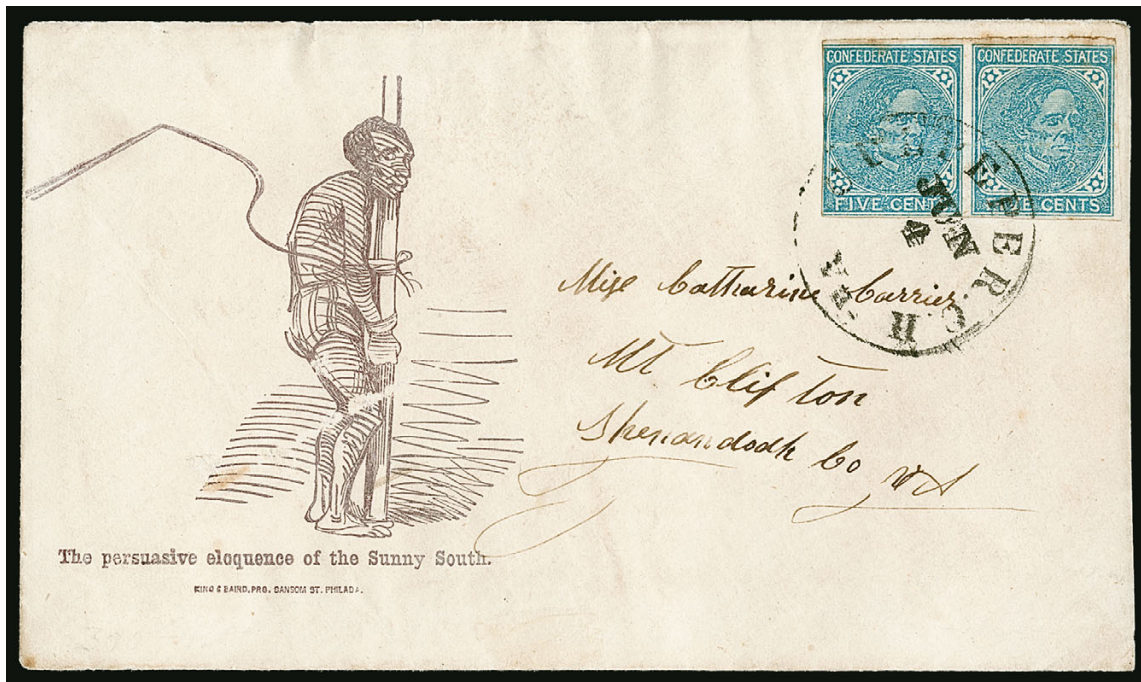 CONFEDERATE STATES
FIVE CENTS
CONFEDERATE STATES
FIVE CENTS
JUN
4
Miss Catharine Carrier
Mt Clifton
Shenandoah Co VA
The persuasive eloquence of the Sunny South.
KING & BAIRD, PRO. SANSOM ST. PHILADA.